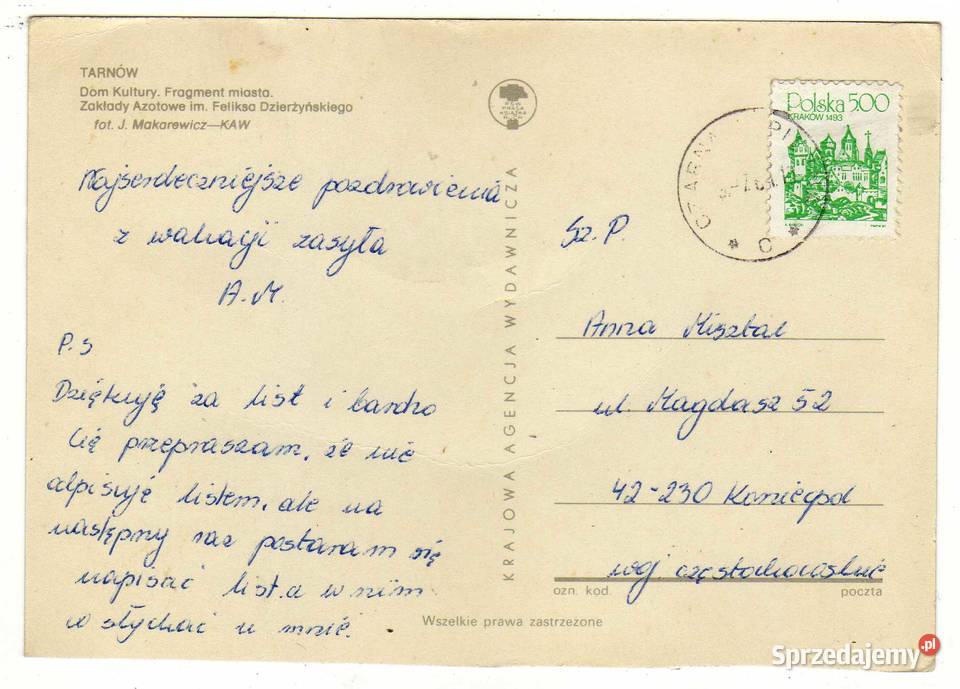 TARNÓW
Dom Kultury. Fragment miasta.
Zakłady Azotowe im. Feliksa Dzierżyńskiego
fot. J. Makarewicz—KAW
Najserdeczniejsze pozdrowienia
z wakacji zasyła
A.M.
P.S
Dziękuję za list i bardzo
Cię przepraszam, że nie
odpisuję listem, ale na
następny raz postaram się
napisać list. a w nim
co słychać u mnie.
KRAJOWA AGENCJA WYDAWNICZA
Wszelkie prawa zastrzeżone
Polska 5.00
KRAKÓW 1493
CZARNA
C
Sz. P.
Anna Misztal
ul. Magdasz 52
42-230 Koniecpol
woj. częstochowskie
ozn. kod.
poczta
Sprzedajemy.pl